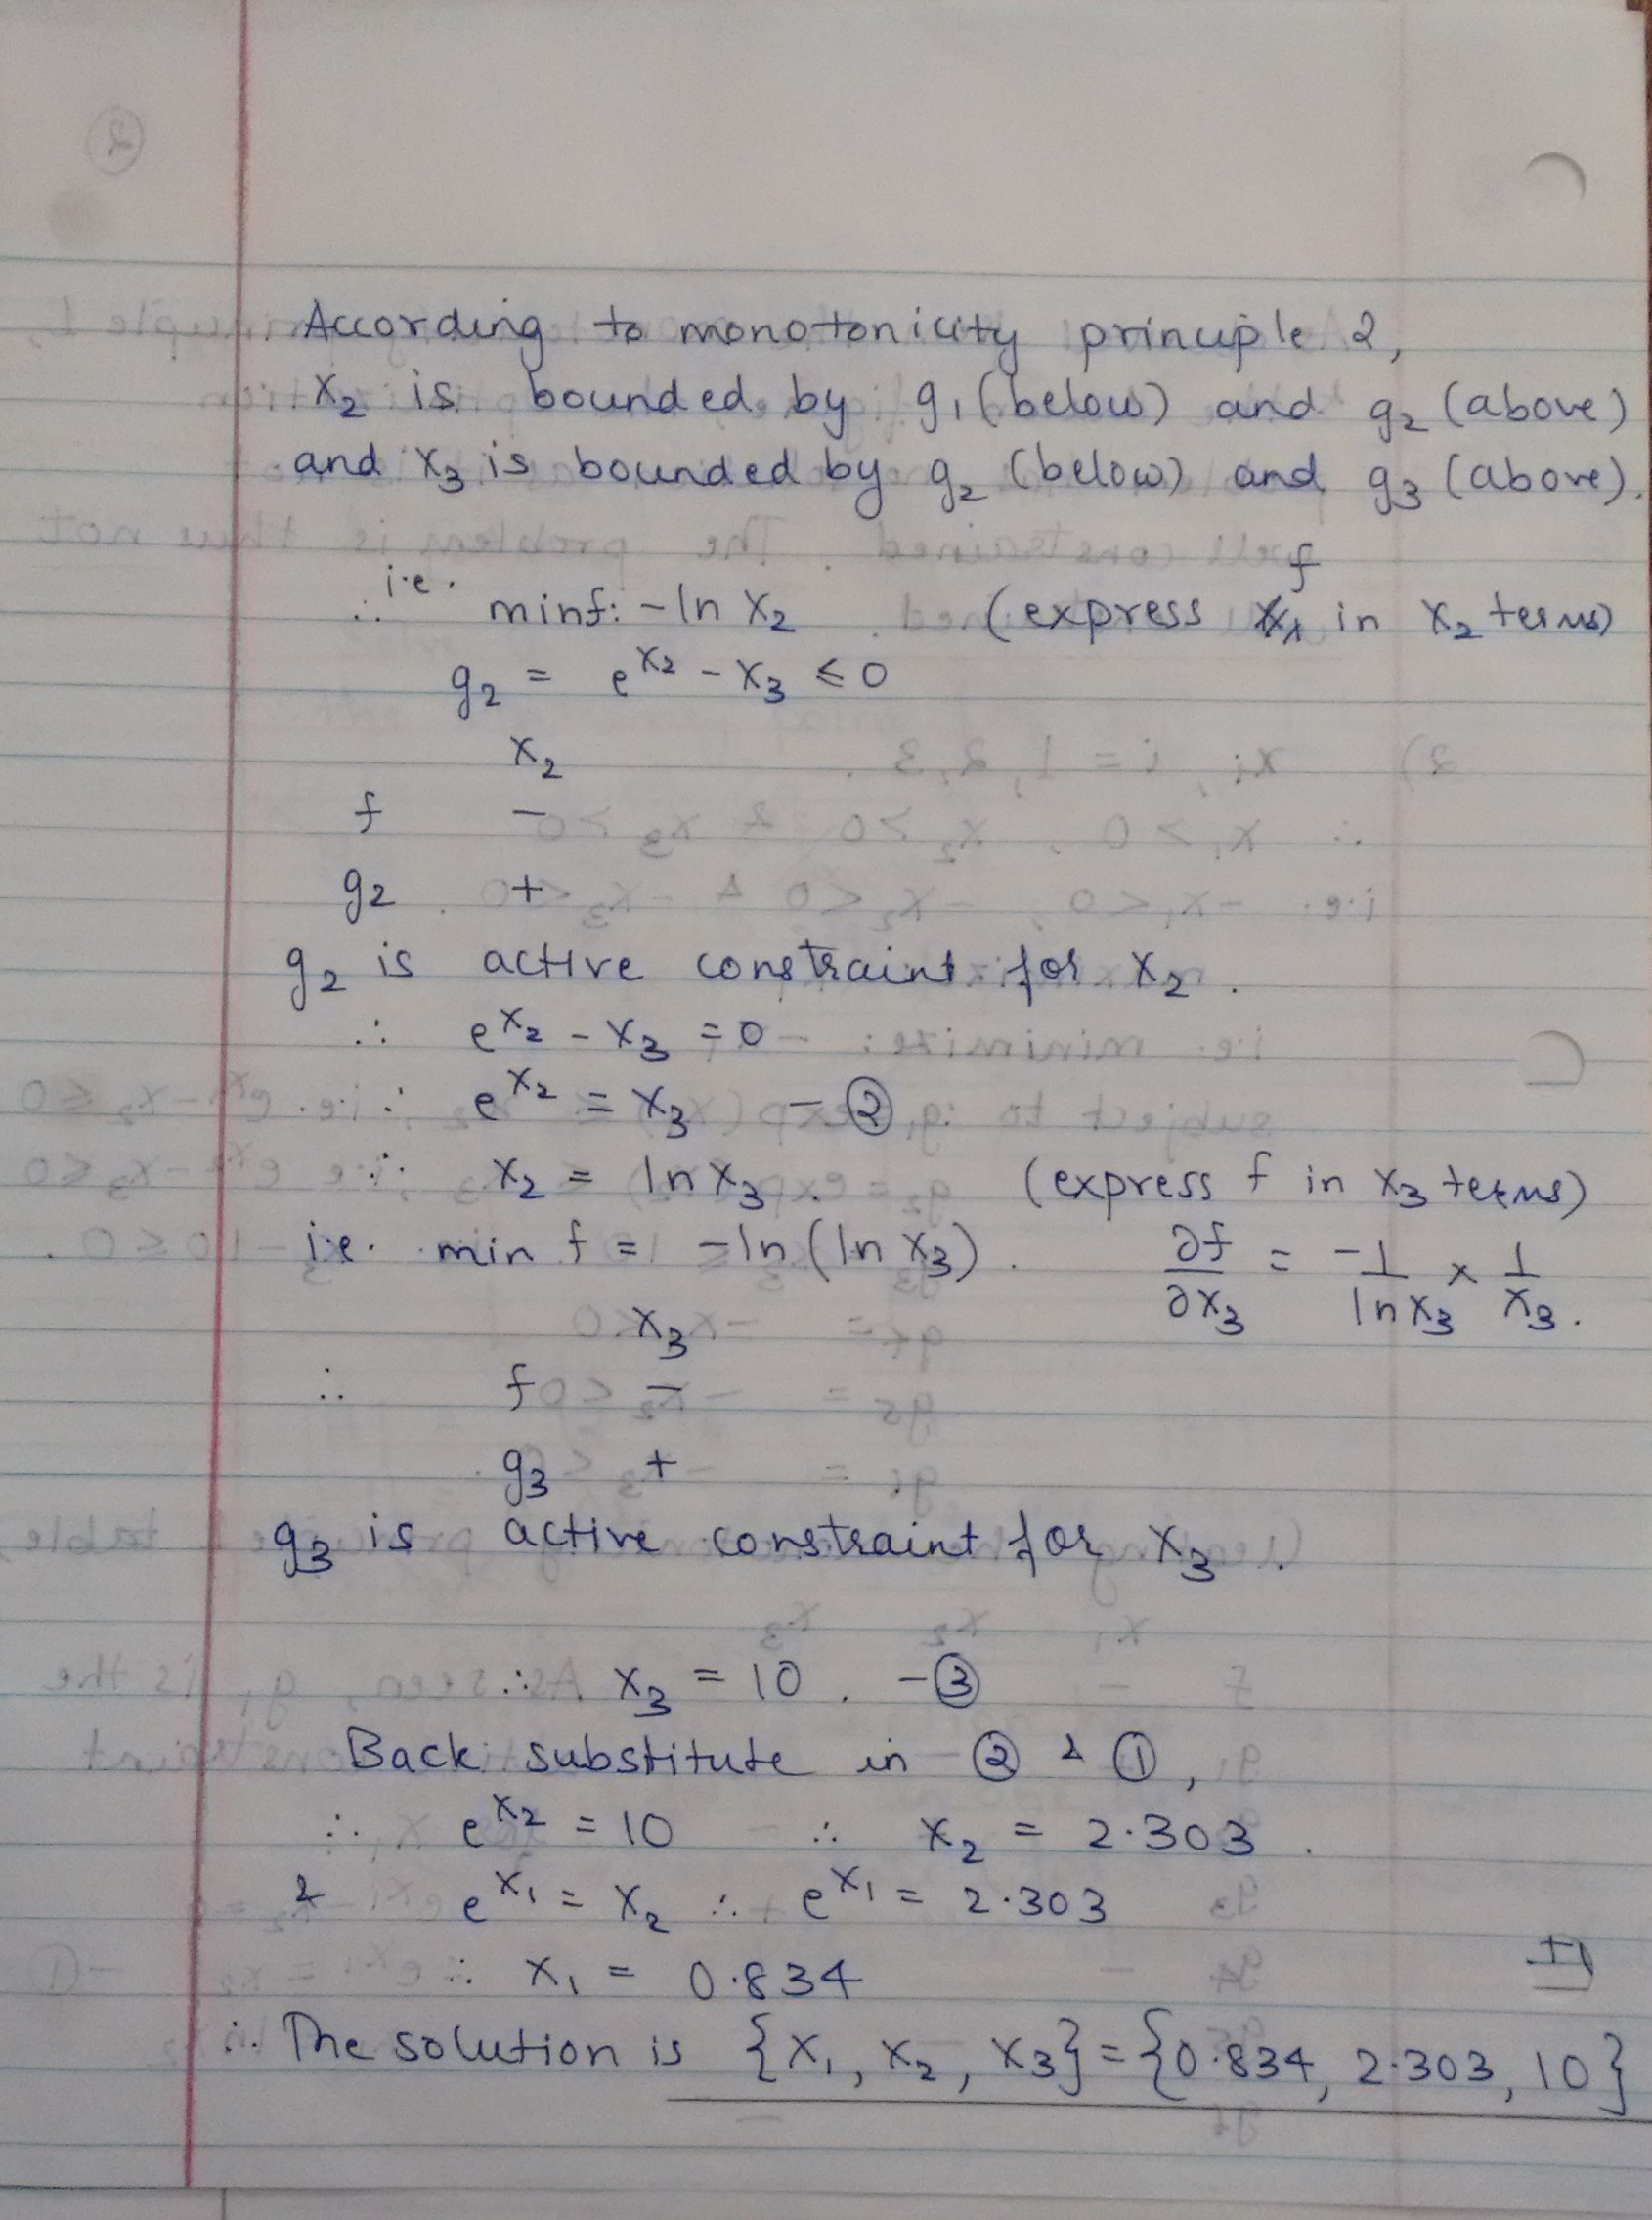 According to monotonicity principle 2,
x₂ is bounded by g₁ (below) and g₂ (above)
and x₃ is bounded by g₂ (below) and g₃ (above).
∴ i.e. minf: -ln x₂ (express f in x₂ terms)
g₂ = e^x₂ - x₃ ≤ 0
x₂
f -
g₂ +
g₂ is active constraint for x₂.
∴ e^x₂ - x₃ = 0
∴ e^x₂ = x₃ - ②
∴ x₂ = ln x₃. (express f in x₃ terms)
i.e. min f = -ln(ln x₃). ∂f/∂x₃ = -1/ln x₃ × 1/x₃.
x₃
∴ f -
g₃ +
g₃ is active constraint for x₃.
∴ x₃ = 10. - ③
Back substitute in ② & ①,
∴ e^x₂ = 10 ∴ x₂ = 2.303.
& e^x₁ = x₂ ∴ e^x₁ = 2.303
∴ x₁ = 0.834
∴ The solution is {x₁, x₂, x₃} = {0.834, 2.303, 10}